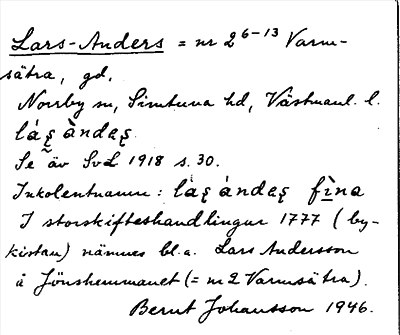 Lars-Anders = nr 2 6-13 Varm-
sätra, gd,
Norrby sn, Simtuna hd, Västmanl. l.
Se äv SvL 1918 s. 30.
Inkolentnamn:
I storskifteshandlingar 1777 (by-
kistan) nämnes bl.a. Lars Andersson
å Jönshemmanet (= nr 2 Varmsätra).
Bernt Johansson 1946.